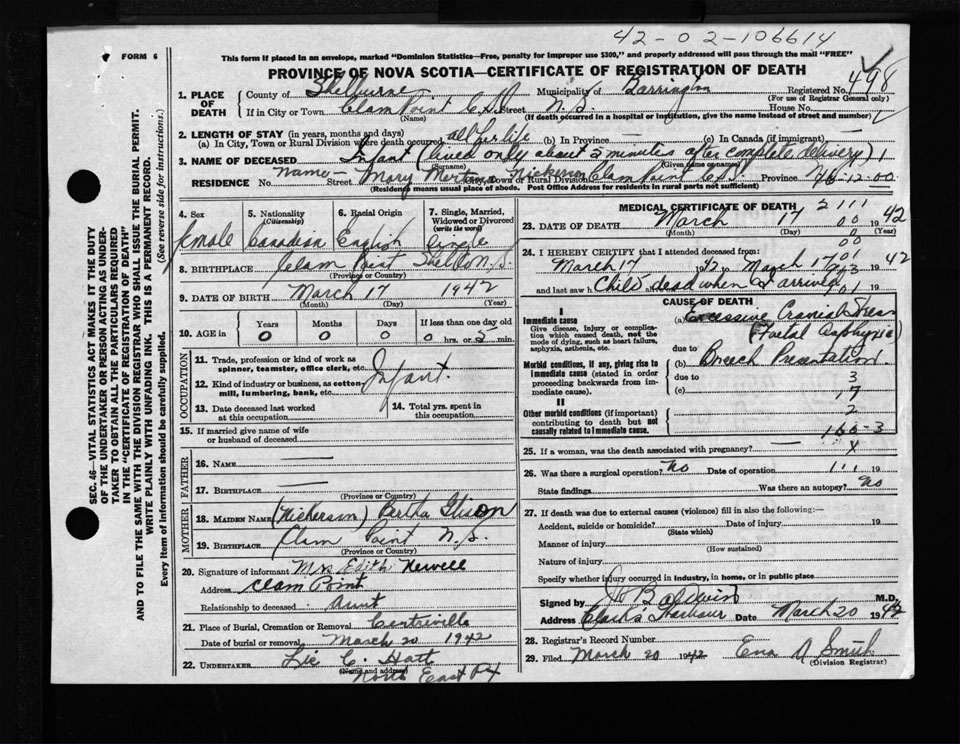 42-02-106614
FORM 6
This form if placed in an envelope, marked "Dominion Statistics—Free, penalty for improper use $300," and properly addressed will pass through the mail "FREE"
PROVINCE OF NOVA SCOTIA—CERTIFICATE OF REGISTRATION OF DEATH
1. PLACE OF DEATH
County of Shelburne Municipality of Barrington Registered No. 498
(For use of Registrar General only)
If in City or Town Clam Point C.S.I. Street N.S. House No.
(Name) (If death occurred in a hospital or institution, give the name instead of street and number)
2. LENGTH OF STAY (in years, months and days)
(a) In City, Town or Rural Division where death occurred all her life (b) In Province — (c) In Canada (if immigrant) —
3. NAME OF DECEASED Infant (lived only about 5 minutes after complete delivery)
(Surname) (Given name or names)
Name - Mary Nickerson Clam Point C.S.I.
RESIDENCE No. Street Town or Rural Division Province 76-12-00
(Residence means usual place of abode. Post Office Address for residents in rural parts not sufficient)
4. Sex
female
5. Nationality
(Citizenship)
Canadian
6. Racial Origin
English
7. Single, Married, Widowed or Divorced
(write the word)
Single
8. BIRTHPLACE Clam Point Shel Co N.S.
(Province or Country)
9. DATE OF BIRTH March 17 1942
(Month) (Day) (Year)
10. AGE in
Years Months Days If less than one day
0 0 0 0 hrs. or 5 min.
OCCUPATION
11. Trade, profession or kind of work as spinner, teamster, office clerk, etc.
Infant.
12. Kind of industry or business, as cotton-mill, lumbering, bank, etc.
13. Date deceased last worked at this occupation
14. Total yrs. spent in this occupation
15. If married give name of wife or husband of deceased
FATHER
16. NAME —
17. BIRTHPLACE —
(Province or Country)
MOTHER
18. MAIDEN NAME (Nickerson) Bertha
19. BIRTHPLACE Clam Point N.S.
(Province or Country)
20. Signature of informant Mrs Edith Newell
Address Clam Point
Relationship to deceased Aunt
21. Place of Burial, Cremation or Removal Centreville
Date of burial or removal March 20 1942
22. UNDERTAKER C. Hatt
(Name and address)
North East Pt
MEDICAL CERTIFICATE OF DEATH
2 111
23. DATE OF DEATH March 17 1942
(Month) (Day) (Year)
00
00
24. I HEREBY CERTIFY that I attended deceased from:
March 17 1942 to March 17 1942
01
and last saw h Child dead when I arrived
101
CAUSE OF DEATH
I
Immediate cause
Give disease, injury or complication which caused death, not the mode of dying, such as heart failure, asphyxia, asthenia, etc.
(a) Excessive Cranial
(Foetal Asphyxia)
due to
Morbid conditions, if any, giving rise to immediate cause (stated in order proceeding backwards from immediate cause).
(b) Breech Presentation.
due to 3
(c) 17
II
Other morbid conditions (if important) contributing to death but not causally related to immediate cause.
2
160-3
25. If a woman, was the death associated with pregnancy? — X
26. Was there a surgical operation? No Date of operation 111 19
State findings Was there an autopsy? No
27. If death was due to external causes (violence) fill in also the following:—
Accident, suicide or homicide? Date of injury 19
(State which)
Manner of injury
(How sustained)
Nature of injury
Specify whether injury occurred in industry, in home, or in public place
Signed by Baldwin M.D.
Address Clark's Harbour Date March 20 1942
28. Registrar's Record Number
29. Filed March 20 1942 Ena A Smith
(Division Registrar)
SEC. 46—VITAL STATISTICS ACT MAKES IT THE DUTY
OF THE UNDERTAKER OR PERSON ACTING AS UNDER-
TAKER TO OBTAIN ALL THE PARTICULARS REQUIRED
IN THE "CERTIFICATE OF REGISTRATION OF DEATH"
AND TO FILE THE SAME WITH THE DIVISION REGISTRAR WHO SHALL ISSUE THE BURIAL PERMIT.
WRITE PLAINLY WITH UNFADING INK. THIS IS A PERMANENT RECORD.
Every item of information should be carefully supplied. (See reverse side for instructions.)